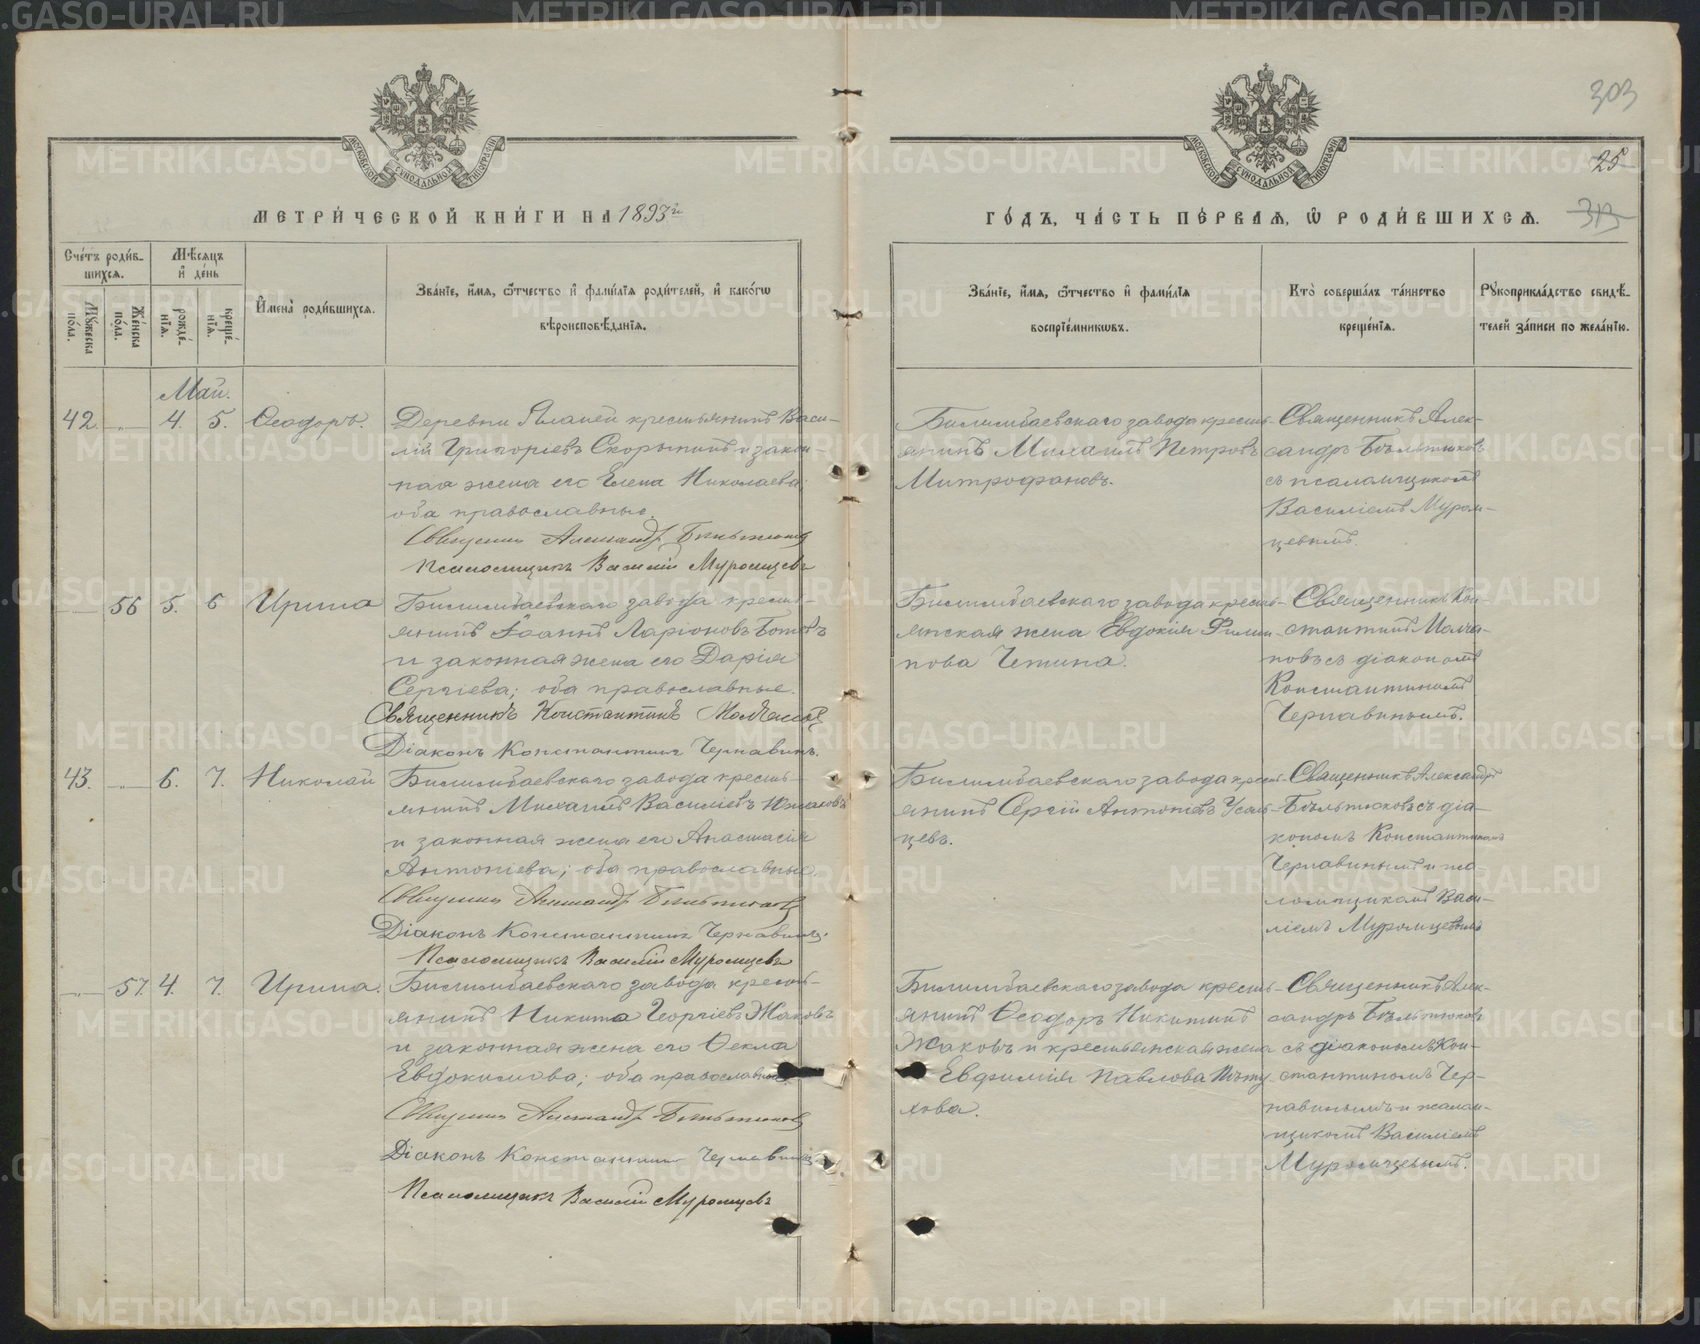 303
25
313
МОСКОВСКОЙ СѴНОДАЛЬНОЙ ТИПОГРАФІИ
МОСКОВСКОЙ СѴНОДАЛЬНОЙ ТИПОГРАФІИ
МЕТРИ́ЧЕСКОЙ КНИ́ГИ НА 1893й
ГО́ДЪ, ЧА́СТЬ ПЕ́РВАѦ, Ѽ РОДИ́ВШИХСѦ.
Сче́тъ роди́в-
шихсѧ.
Мѣ́сѧцъ
и҆ де́нь
Мꙋ́жеска
по́ла.
Же́нска
по́ла.
рожде́-
нїѧ.
креще́-
нїѧ.
И҆мена̀ роди́вшихсѧ.
Зва́нїе, и҆́мѧ, ѻ҆́тчество и҆ фами́лїѧ роди́телей, и҆ како́гѡ
вѣроисповѣ́данїѧ.
Зва́нїе, и҆́мѧ, ѻ҆́тчество и҆ фами́лїѧ
воспрїе́мникѡвъ.
Кто̀ соверша́лъ та́инство
креще́нїѧ.
Рꙋкоприкла́дство свидѣ́-
телей за́писи по жела́нїю.
Май.
42. — 4. 5. Ѳеодоръ.
Деревни крестьянинъ Васи-
лій Григорьевъ Скорынинъ и закон-
ная жена его Елена Николаева;
оба православные.
Священникъ Александръ Бѣльтюковъ
Псаломщикъ Василій Муромцевъ
Билимбаевскаго завода кресть-
янинъ Михаилъ Петровъ
Митрофановъ.
Священникъ Алек-
сандръ Бѣльтюковъ
съ псаломщикомъ
Василіемъ Муром-
цевымъ.
— 56 5. 6 Ирина
Билимбаевскаго завода кресть-
янинъ Іоаннъ Ларіоновъ
и законная жена его Дарія
Сергіева; оба православные.
Священникъ Константинъ
Діаконъ Константинъ Чернавинъ.
Билимбаевскаго завода кресть-
янская жена Евдокія Филип-
пова Чепина.
Священникъ Кон-
стантинъ Молча-
новъ съ діакономъ
Константиномъ
Чернавинымъ.
43. — 6. 7. Николай
Билимбаевскаго завода кресть-
янинъ Михаилъ Василіевъ
и законная жена его Анастасія
Антоніева; оба православные.
Священникъ Александръ Бѣльтюковъ
Діаконъ Константинъ Чернавинъ.
Псаломщикъ Василій Муромцевъ
Билимбаевскаго завода кресть-
янинъ Сергій Антоніевъ Усаль-
цевъ.
Священникъ Александръ
Бѣльтюковъ съ діа-
кономъ Константиномъ
Чернавинымъ и пса-
ломщикомъ Васи-
ліемъ Муромцевымъ
— 57. 4. 7. Ирина.
Билимбаевскаго завода кресть-
янинъ Никита Георгіевъ Жаковъ
и законная жена его Ѳекла
Евдокимова; оба православные.
Священникъ Александръ Бѣльтюковъ
Діаконъ Константинъ Чернавинъ
Псаломщикъ Василій Муромцевъ
Билимбаевскаго завода кресть-
янинъ Ѳеодоръ Никитинъ
Жаковъ и крестьянская жена
Евфимія Павлова Пѣту-
хова.
Священникъ Алек-
сандръ Бѣльтюковъ
съ діакономъ Кон-
стантиномъ Чер-
навинымъ и псалом-
щикомъ Василіемъ
Муромцевымъ.
METRIKI.GASO-URAL.RU